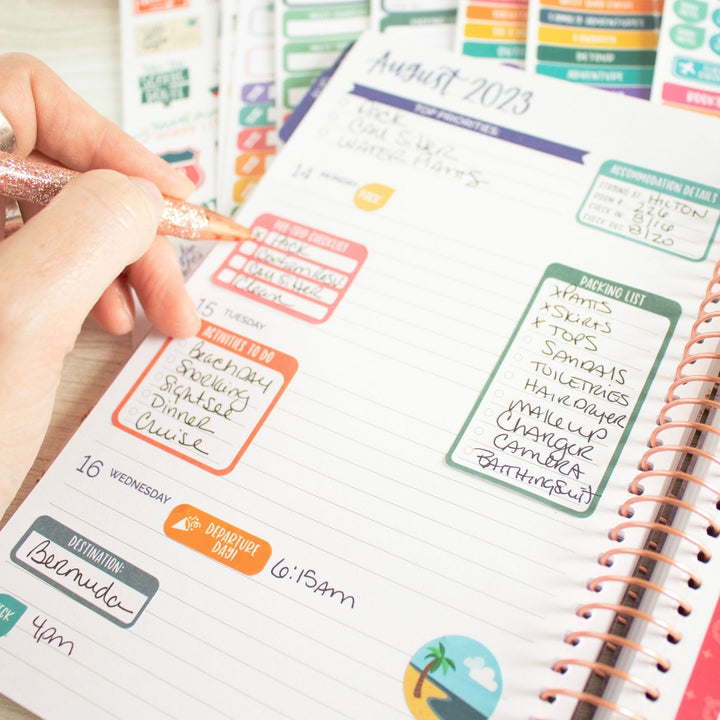 August 2023
TOP PRIORITIES
PACK
CALL SITTER
WATER PLANTS
14 MONDAY
PACK
ACCOMMODATION DETAILS
STAYING AT: HILTON
ROOM #: 226
CHECK IN: 8/16
CHECK OUT: 8/20
PRE-TRIP CHECKLIST
x PACK
Confirm Resv
Call Sitter
Clean
PACKING LIST
x PANTS
x SKIRTS
x TOPS
SANDALS
TOILETRIES
HAIRDRYER
MAKEUP
CHARGER
CAMERA
BATHINGSUIT
15 TUESDAY
ACTIVITIES TO DO
BeachDAY
Snorkling
Sightsee
Dinner
Cruise
16 WEDNESDAY
DEPARTURE DAY!
6:15AM
DESTINATION:
Bermuda
4pm